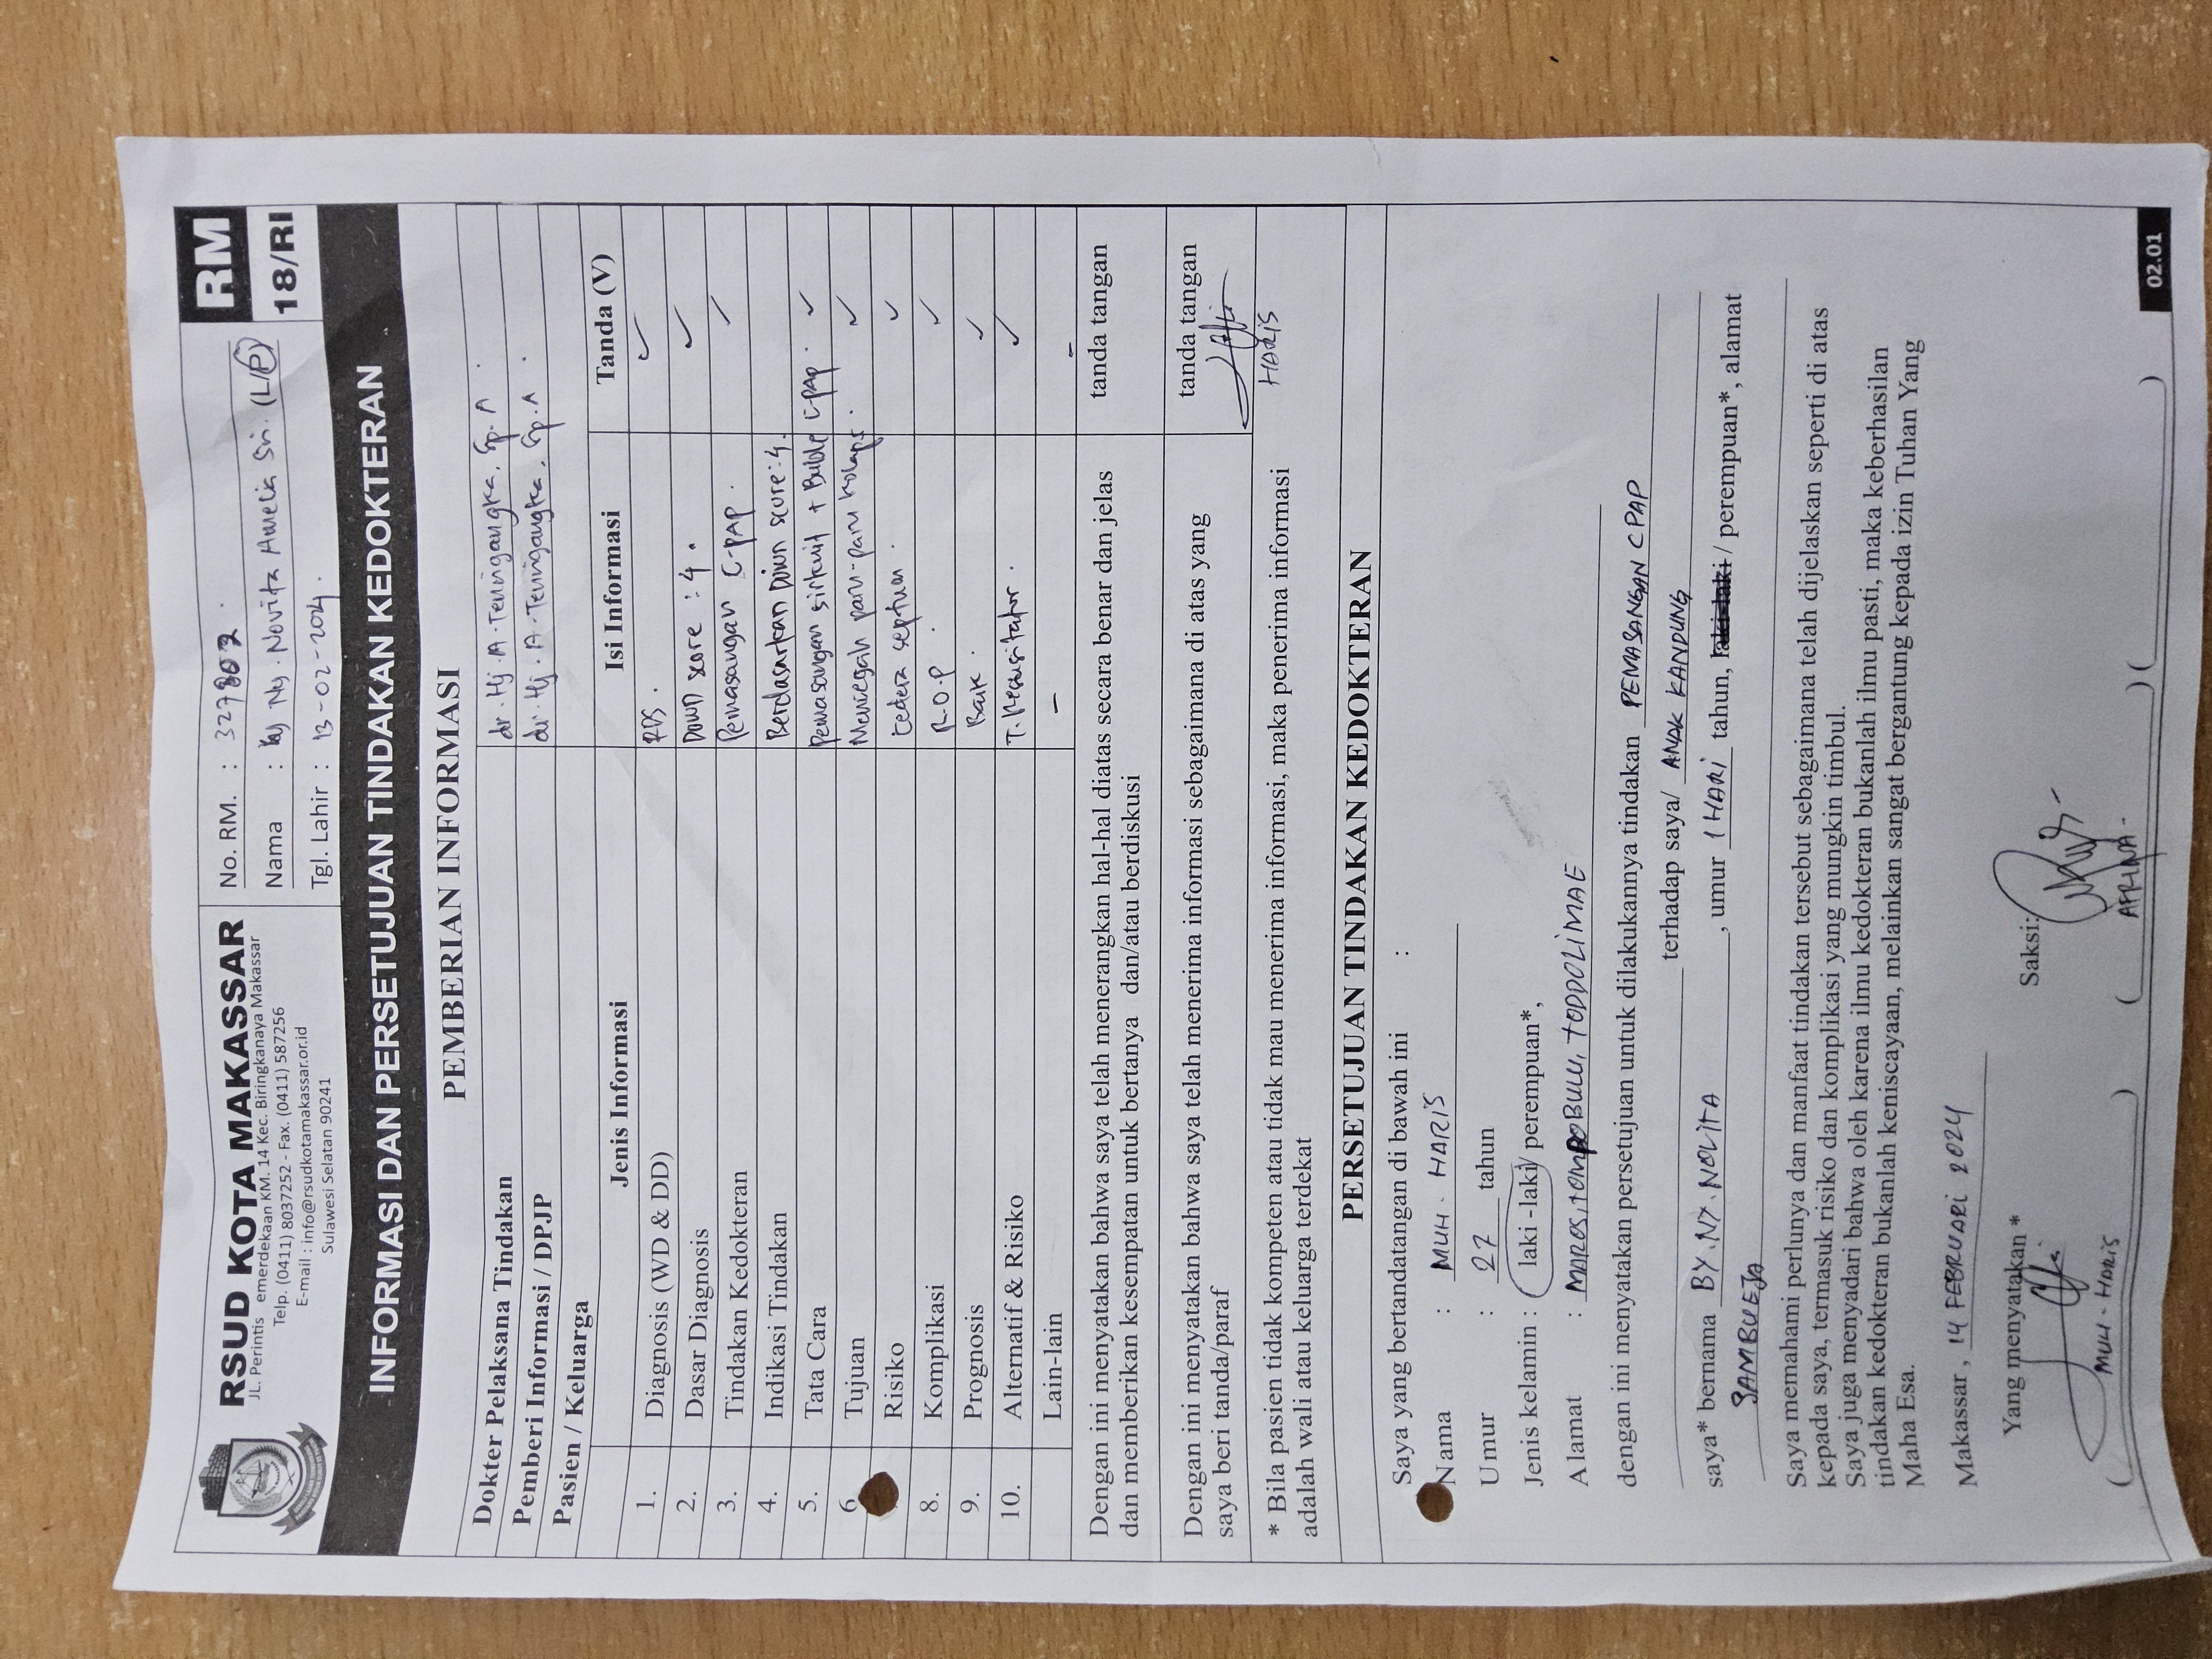 RSUD KOTA MAKASSAR
JL. Perintis emerdekaan KM. 14 Kec. Biringkanaya Makassar
Telp. (0411) 8037252 - Fax. (0411) 587256
E-mail : info@rsudkotamakassar.or.id
Sulawesi Selatan 90241
No. RM. : 327802
Nama : By Ny. Novita Amelia Sri. (L/P)
Tgl. Lahir : 13-02-2024.
RM
18/RI
INFORMASI DAN PERSETUJUAN TINDAKAN KEDOKTERAN
PEMBERIAN INFORMASI
Dokter Pelaksana Tindakan dr. Hj. A. Tenringangka, Sp. A
Pemberi Informasi / DPJP dr. Hj. A. Tenringangka, Sp. A
Pasien / Keluarga
Jenis Informasi Isi Informasi Tanda (V)
1. Diagnosis (WD & DD) RDS. ✓
2. Dasar Diagnosis Down score : 4. ✓
3. Tindakan Kedokteran Pemasangan C-PAP. ✓
4. Indikasi Tindakan Berdasarkan Down score: 4.
5. Tata Cara Pemasangan sirkuit + Buble C-PAP. ✓
6 Tujuan Mencegah paru-paru kolaps. ✓
Risiko Cedera septum ✓
8. Komplikasi R.O.P ✓
9. Prognosis Baik ✓
10. Alternatif & Risiko T. Resusitator. ✓
Lain-lain – –
Dengan ini menyatakan bahwa saya telah menerangkan hal-hal diatas secara benar dan jelas
dan memberikan kesempatan untuk bertanya dan/atau berdiskusi
tanda tangan
Dengan ini menyatakan bahwa saya telah menerima informasi sebagaimana di atas yang
saya beri tanda/paraf
tanda tangan
HARIS
* Bila pasien tidak kompeten atau tidak mau menerima informasi, maka penerima informasi
adalah wali atau keluarga terdekat
PERSETUJUAN TINDAKAN KEDOKTERAN
Saya yang bertandatangan di bawah ini :
Nama : MUH. HARIS
Umur : 27 tahun
Jenis kelamin : laki -laki/ perempuan*,
Alamat : MAROS, TOMPOBULU, TODDOLIMAE
dengan ini menyatakan persetujuan untuk dilakukannya tindakan PEMASANGAN CPAP
terhadap saya/ ANAK KANDUNG
saya* bernama BY. NY. NOVITA, umur 1 HARI tahun, laki-laki / perempuan*, alamat
SAMBUEJA
Saya memahami perlunya dan manfaat tindakan tersebut sebagaimana telah dijelaskan seperti di atas
kepada saya, termasuk risiko dan komplikasi yang mungkin timbul.
Saya juga menyadari bahwa oleh karena ilmu kedokteran bukanlah ilmu pasti, maka keberhasilan
tindakan kedokteran bukanlah keniscayaan, melainkan sangat bergantung kepada izin Tuhan Yang
Maha Esa.
Makassar, 14 FEBRUARI 2024
Yang menyatakan * Saksi:
(MUH. HARIS) (AFRINA) ( )
02.01